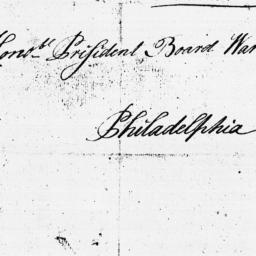 Honble. President Board War
Philadelphia